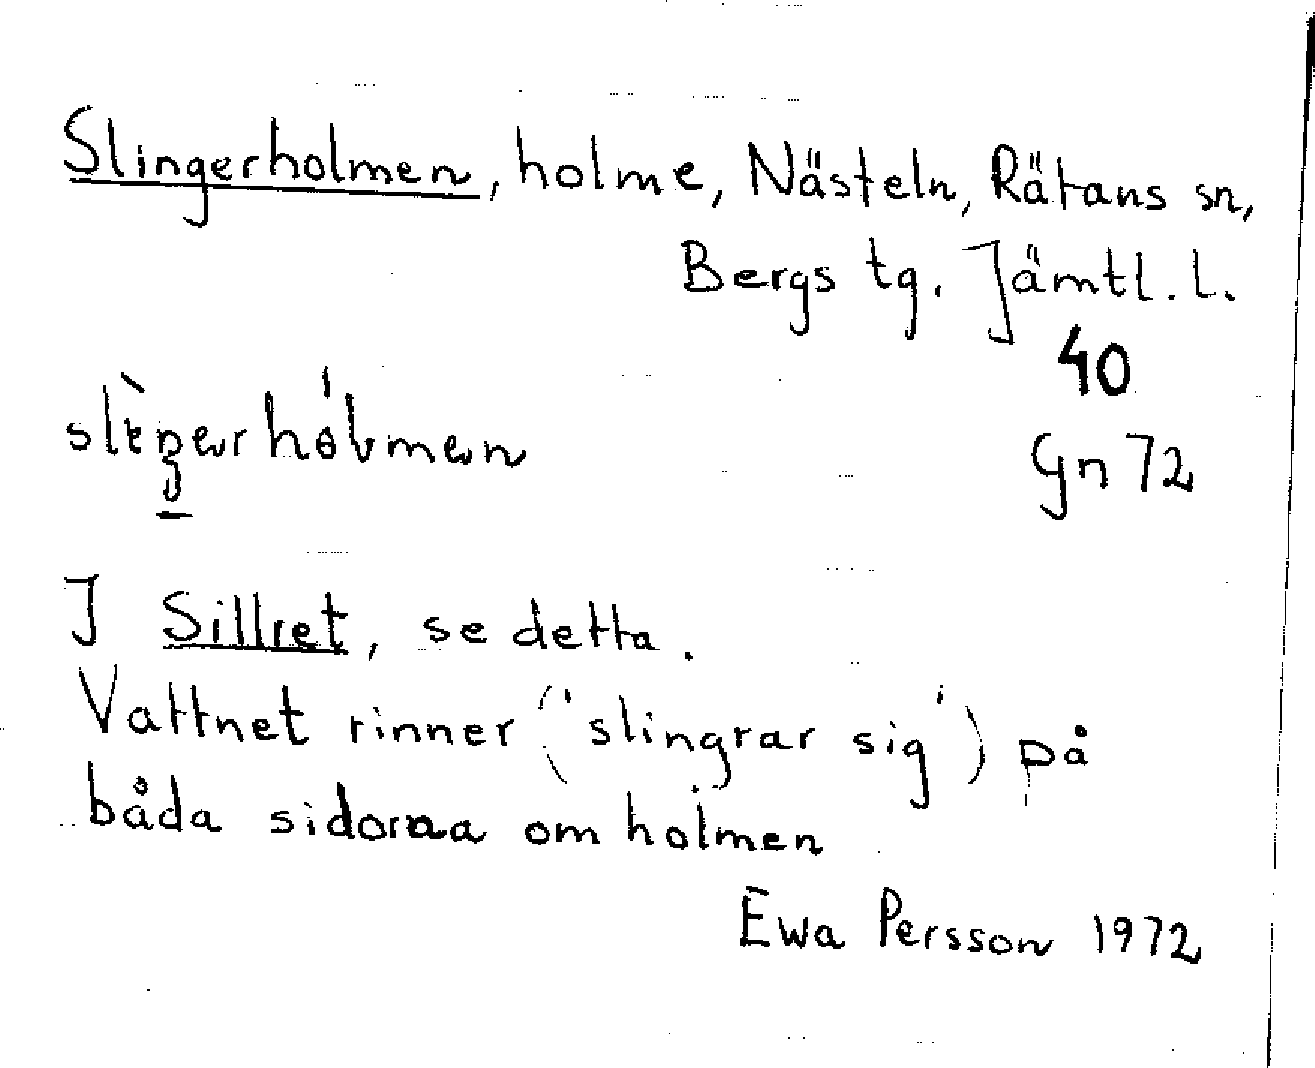 Slingerholmen, holme, Nästeln, Rätans sn,
Bergs tg. Jämtl. l.
40
Gn 72
I Sillret, se detta.
Vattnet rinner ('slingrar sig') på
båda sidorna om holmen
Ewa Persson 1972